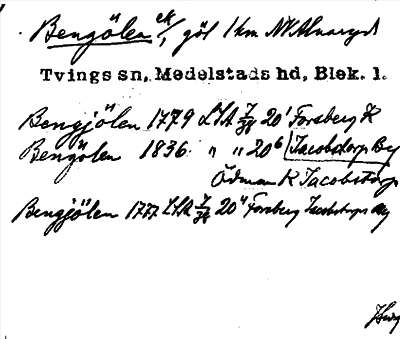 Bengölen ck/, göl 1 km NV Alnaryd
Tvings sn, Medelstads hd, Blek. l.
Bengjölen 1779 LSA 7/38 20¹ Forsberg K
Bengölen 1836 " " 20⁶ Jacobstorp By
Ödman K Jacobstorp
Bengjölen 1777 LSA 7/38 20" Forsberg Jacobstorps By